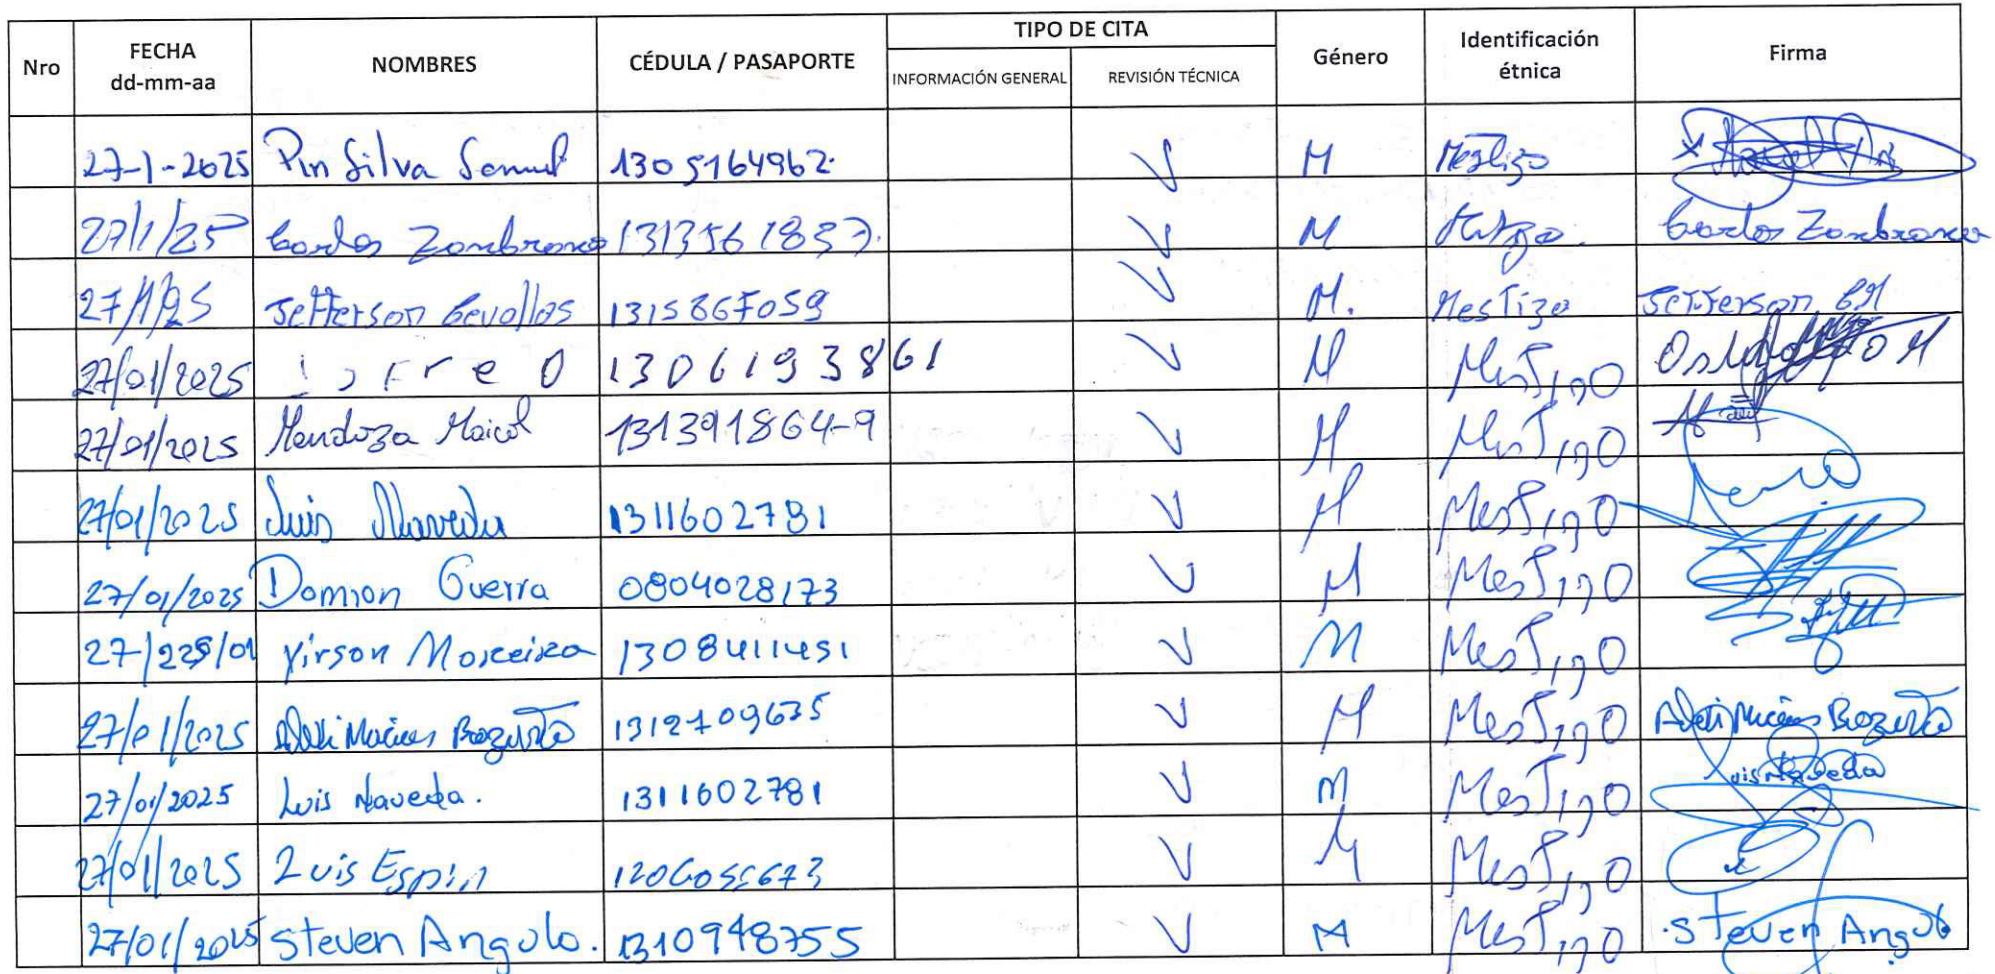 Nro FECHA dd-mm-aa NOMBRES CÉDULA / PASAPORTE TIPO DE CITA INFORMACIÓN GENERAL REVISIÓN TÉCNICA Género Identificación étnica Firma
27-1-2025 Pin Silva Samuel 1305164962 V M Mestizo
27/1/25 Carlos Zambrano 1313561837 V M Carlos Zambrano
27/1/25 Jefferson Cevallos 1315867059 V M. Mestizo Jefferson
27/01/2025 1306193861 V M Mestizo
27/01/2025 Mendoza Maicol 131391864-9 V M Mestizo
27/01/2025 Luis Naveda 1311602781 V M Mestizo
27/01/2025 Damian Guerra 0804028173 V M Mestizo
27/225/01 Yirson Moreira 1308411451 V M Mestizo
27/01/2025 Macias 1312709635 V M Mestizo Macias
27/01/2025 Luis Naveda. 1311602781 V M Mestizo Luis Naveda
27/01/2025 Luis Espin V M Mestizo
27/01/2025 Steven Angulo. 1310948755 V M Mestizo Steven Angulo